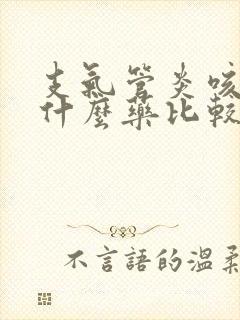 支氣管炎咳
什麼藥比較
不言語的溫柔